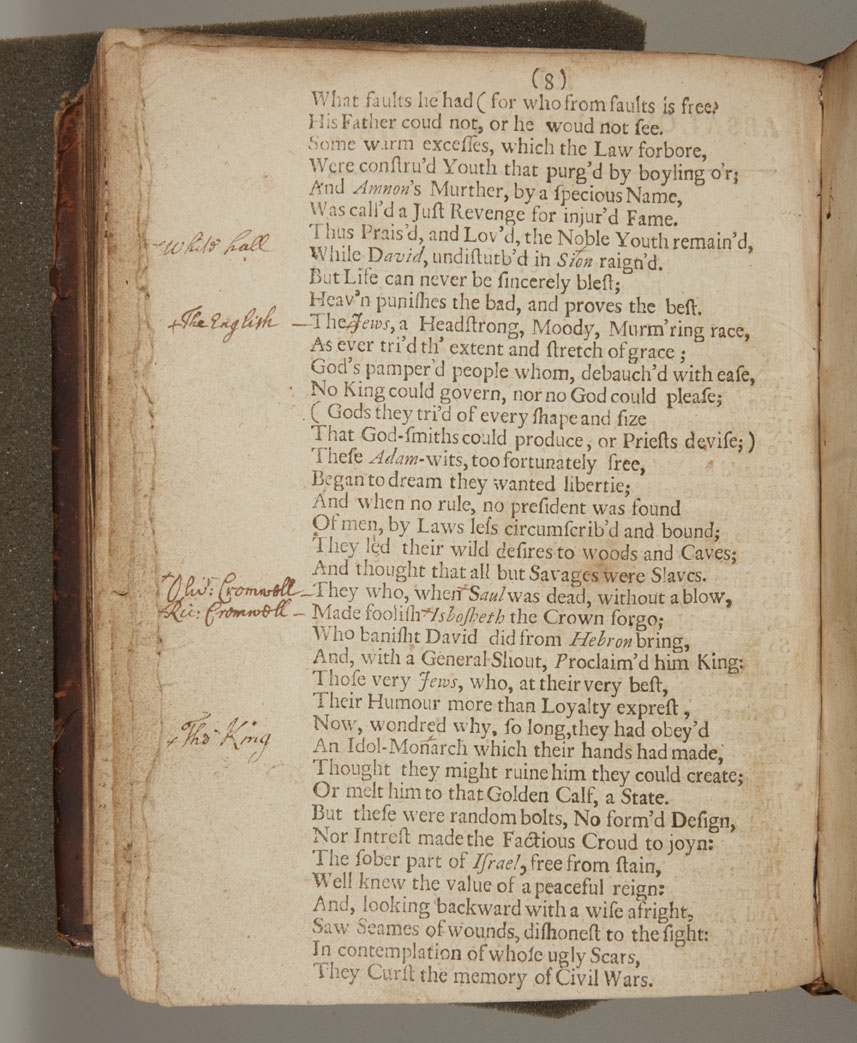 (8)
What faults he had ( for who from faults is free?
His Father coud not, or he woud not ſee.
Some warm exceſſes, which the Law forbore,
Were conſtru'd Youth that purg'd by boyling o'r;
And Amnon's Murther, by a ſpecious Name,
Was call'd a Juſt Revenge for injur'd Fame.
Thus Prais'd, and Lov'd, the Noble Youth remain'd,
White hall
While David, undiſtutb'd in Sion raign'd.
But Life can never be ſincerely bleſt;
Heav'n puniſhes the bad, and proves the beſt.
+The English – The Jews, a Headſtrong, Moody, Murm'ring race,
As ever tri'd th' extent and ſtretch of grace ;
God's pamper'd people whom, debauch'd with eaſe,
No King could govern, nor no God could pleaſe;
( Gods they tri'd of every ſhape and ſize
That God-ſmiths could produce, or Prieſts deviſe; )
Theſe Adam-wits, too fortunately free,
Began to dream they wanted libertie;
And when no rule, no preſident was found
Of men, by Laws leſs circumſcrib'd and bound;
They led their wild deſires to woods and Caves;
And thought that all but Savages were Slaves.
Oliv: Cromwell – They who, when Saul was dead, without a blow,
Ric: Cromwell – Made fooliſh Isboſheth the Crown forgo;
Who baniſht David did from Hebron bring,
And, with a General Shout, Proclaim'd him King:
Thoſe very Jews, who, at their very beſt,
Their Humour more than Loyalty expreſt ,
+The King
Now, wondred why, ſo long, they had obey'd
An Idol-Monarch which their hands had made,
Thought they might ruine him they could create;
Or melt him to that Golden Calf, a State.
But theſe were random bolts, No form'd Deſign,
Nor Intreſt made the Factious Croud to joyn:
The ſober part of Iſrael, free from ſtain,
Well knew the value of a peaceful reign:
And, looking backward with a wiſe afright,
Saw Seames of wounds, diſhoneſt to the ſight:
In contemplation of whoſe ugly Scars,
They Curſt the memory of Civil Wars.